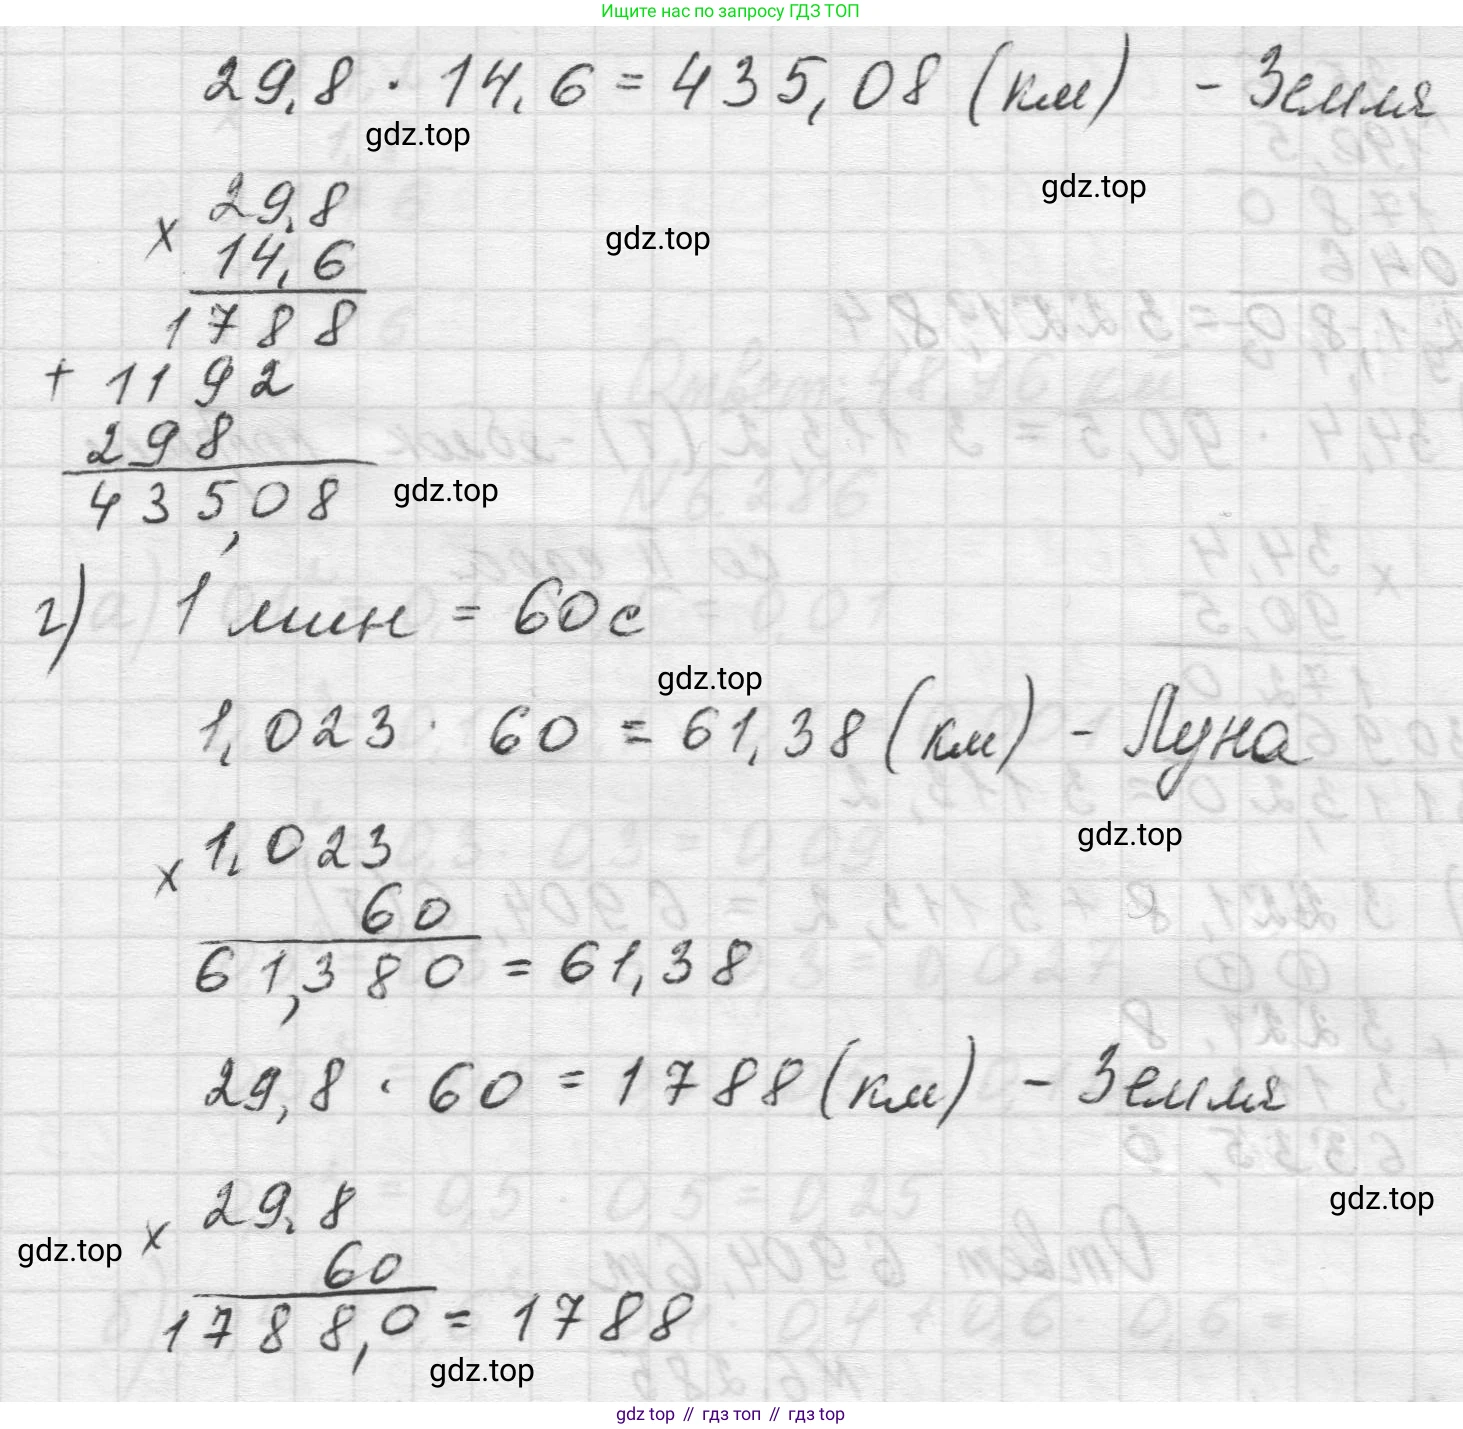 Ищите нас по запросу ГДЗ ТОП
29,8 · 14,6 = 435,08 (км) - Земля
gdz.top
gdz.top
29,8
gdz.top
× 14,6
1788
+ 1192
298
435,08
gdz.top
г) 1 мин = 60 с
gdz.top
1,023 · 60 = 61,38 (км) - Луна
gdz.top
× 1,023
60
61,380 = 61,38
29,8 · 60 = 1788 (км) - Земля
gdz.top
× 29,8
gdz.top
60
1788,0 = 1788
gdz.top
gdz top // гдз топ // гдз top